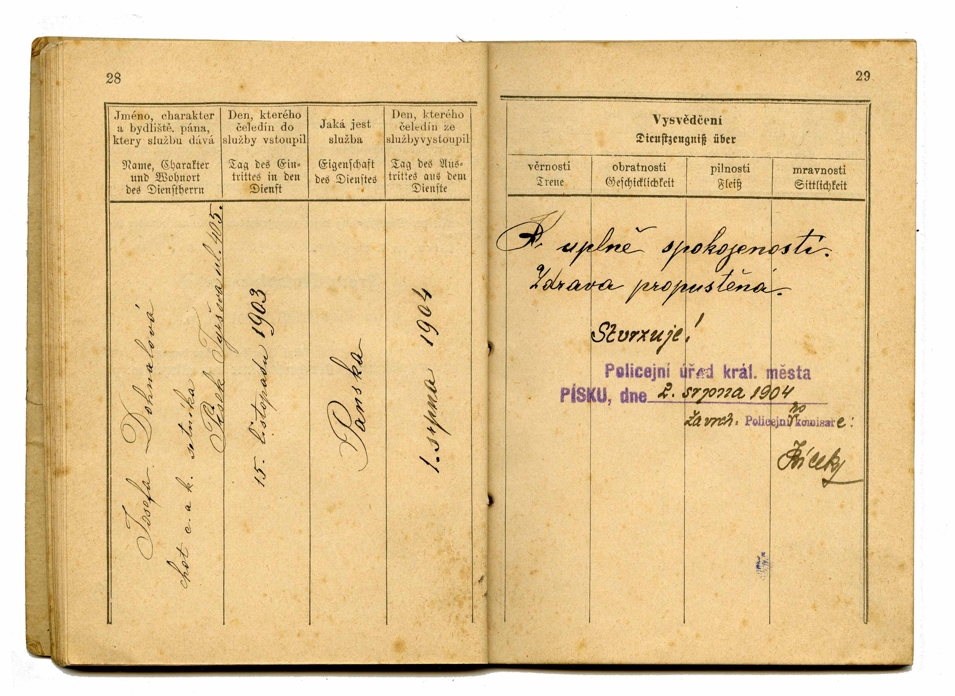 28
Jméno, charakter
a bydliště. pána,
ktery službu dává
Name, Charakter
und Wohnort
des Dienstherrn
Den, kterého
čeledín do
služby vstoupil
Tag des Ein-
trittes in den
Dienst
Jaká jest
služba
Eigenschaft
des Dienstes
Den, kterého
čeledín ze
službyvystoupil
Tag des Aus-
trittes aus dem
Dienste
Josefa Dohnalová
choť c. a k. setníka
Písek Tyršova ul. 405.
15. listopadu 1903
Panská
1. srpna 1904
29
Vysvědčení
Dienstzeugniß über
věrnosti
Treue
obratnosti
Geschicklichkeit
pilnosti
Fleiß
mravnosti
Sittlichkeit
K uplné spokojenosti.
Zdrava propustěná.
Stvrzuje!
Policejní úřad král. města
PÍSKU, dne 2. srpna 1904
za vrch. Policejního komisaře: